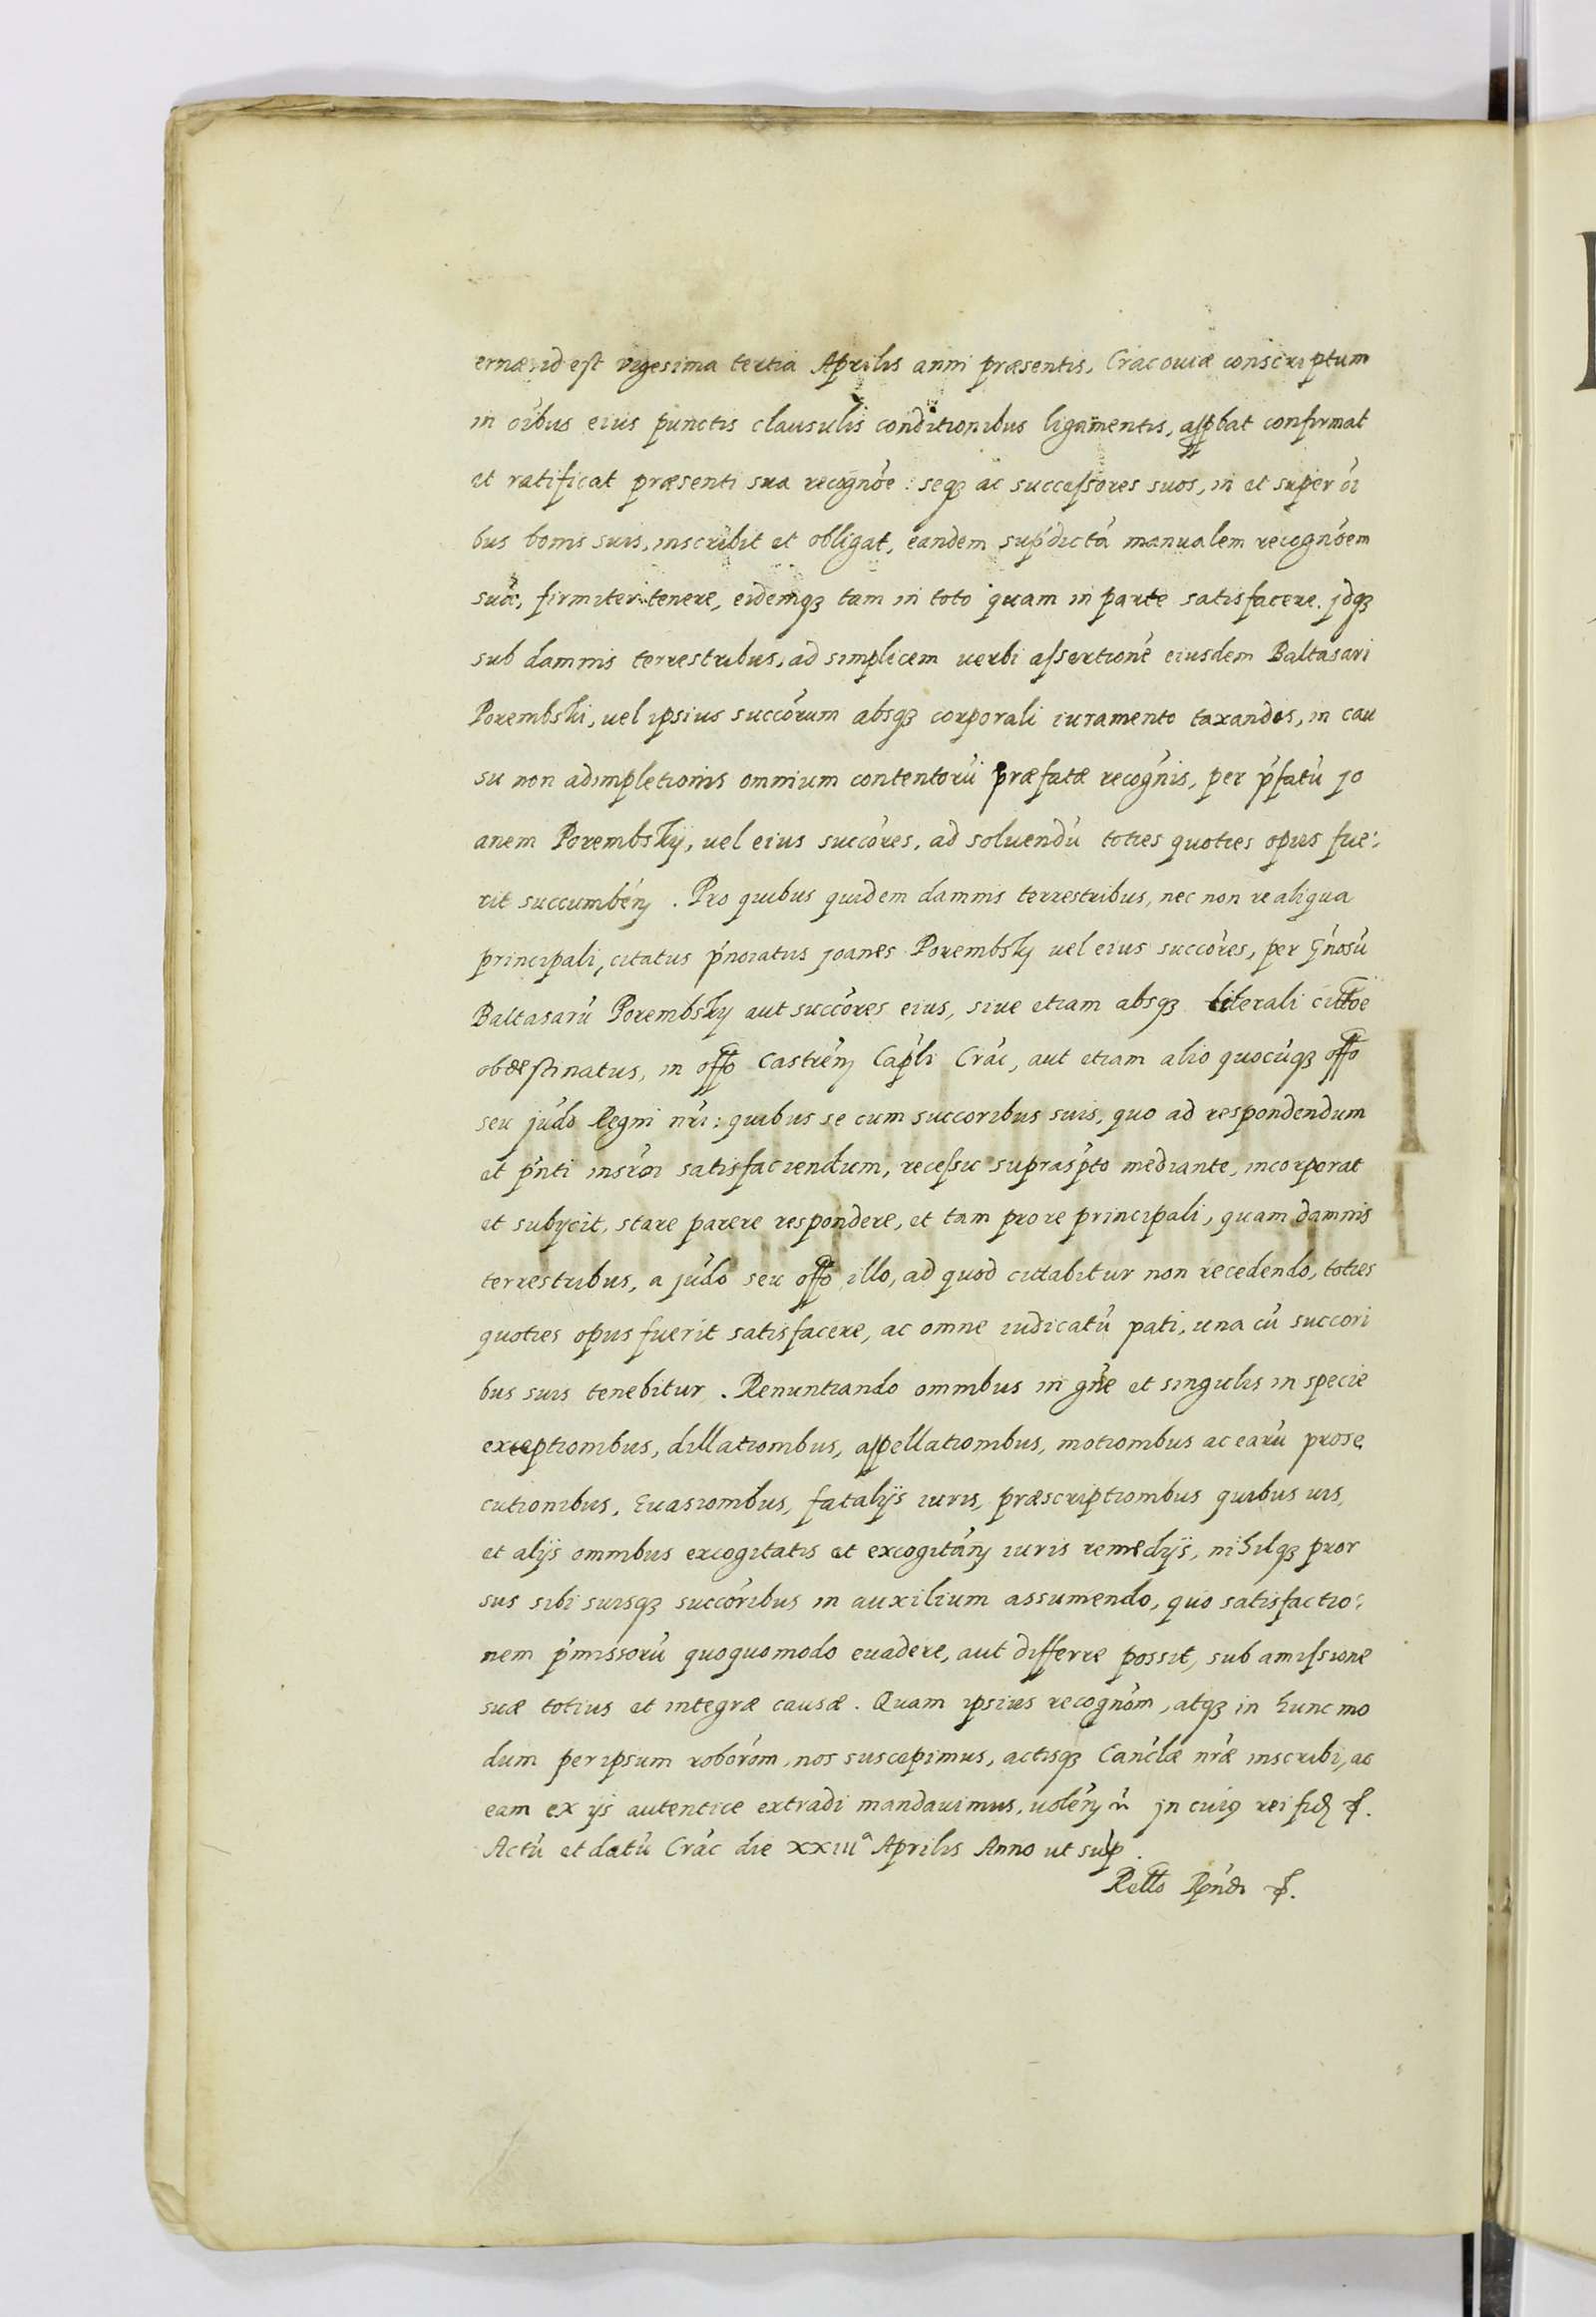 ernæ, id est vigesima tertia Aprilis anni præsentis, Cracoviæ conscriptum
in oi͂bus eius punctis clausulis conditionibus ligamentis, app̱bat confirmat
et ratificat præsenti sua recogno͂e: seqꝫ ac successores suos, in et super oi͂
bus bonis suis, inscribit et obligat, eandem sup͂dicta͂ manualem recogno͂em
sua͂, firmiter tenere, eidemqꝫ tam in toto quam in parte satisfacere. jdqꝫ
sub damnis terrestribus, ad simplicem uerbi assertione͂ eiusdem Baltasari
Porembski, uel ipsius succo͂rum absqꝫ corporali iuramento taxandos, in cau
su non adimpletionis omnium contentoru͂ præfatæ recog͂nis, per p͂fatu͂ jo
anem Porembsky, uel eius succo͂res, ad soluendu͂ toties quoties opus fue:
rit succumbe͂n . Pro quibus quidem damnis terrestribus, nec non re aliqua
principali, citatus p͂no͂iatus joanes Porembsky uel eius succo͂res, per G͂nosu͂
Baltasaru͂ Porembsky aut succo͂res eius, siue etiam absqꝫ literali citt͂oe
obdestinatus, in off͂o Castre͂n Cap͂li Cra͂c, aut etiam alio quocu͂qꝫ off͂o
seu ju͂do Regni nr͂i: quibus se cum succoribus suis, quo ad respondendum
et p͂nti insr͂oi satisfaciendum, recessu supras͂pto mediante, incorporat
et subycit, stare parere respondere, et tam pro re principali, quam damnis
terrestribus, a ju͂do seu off͂o illo, ad quod cittabitur non recedendo, toties
quoties opus fuerit satisfacere, ac omne iudicatu͂ pati, una cu͂ succori
bus suis tenebitur . Renuntiando omnibus in gn͂e et singulis in specie
exceptionibus, dillationibus, appellationibus, motionibus ac earu͂ prose
cutionibus, Euasionibus, fatalijs iuris, præscriptionibus quibus uis,
et alijs omnibus excogitatis et excogita͂n iuris remedijs, nihilqꝫ pror
sus sibi suisqꝫ succo͂ribus in auxilium assumendo, quo satisfactio:
nem p͂missoru͂ quoquomodo euadere, aut differre possit, sub amissione
suæ totius et integræ causæ . Quam ipsius recogno͂m, atqꝫ in hunc mo
dum per ipsum roboro͂m, nos suscepimus, actisqꝫ Can͂clæ nr͂æ inscribi, ac
eam ex ijs autentice extradi mandauimus, uole͂n jn cuiꝯ rei fid
Actu͂ et datu͂ Cra͂c die XXIIIᵃ Aprilis Anno ut sup .
Rell͂o